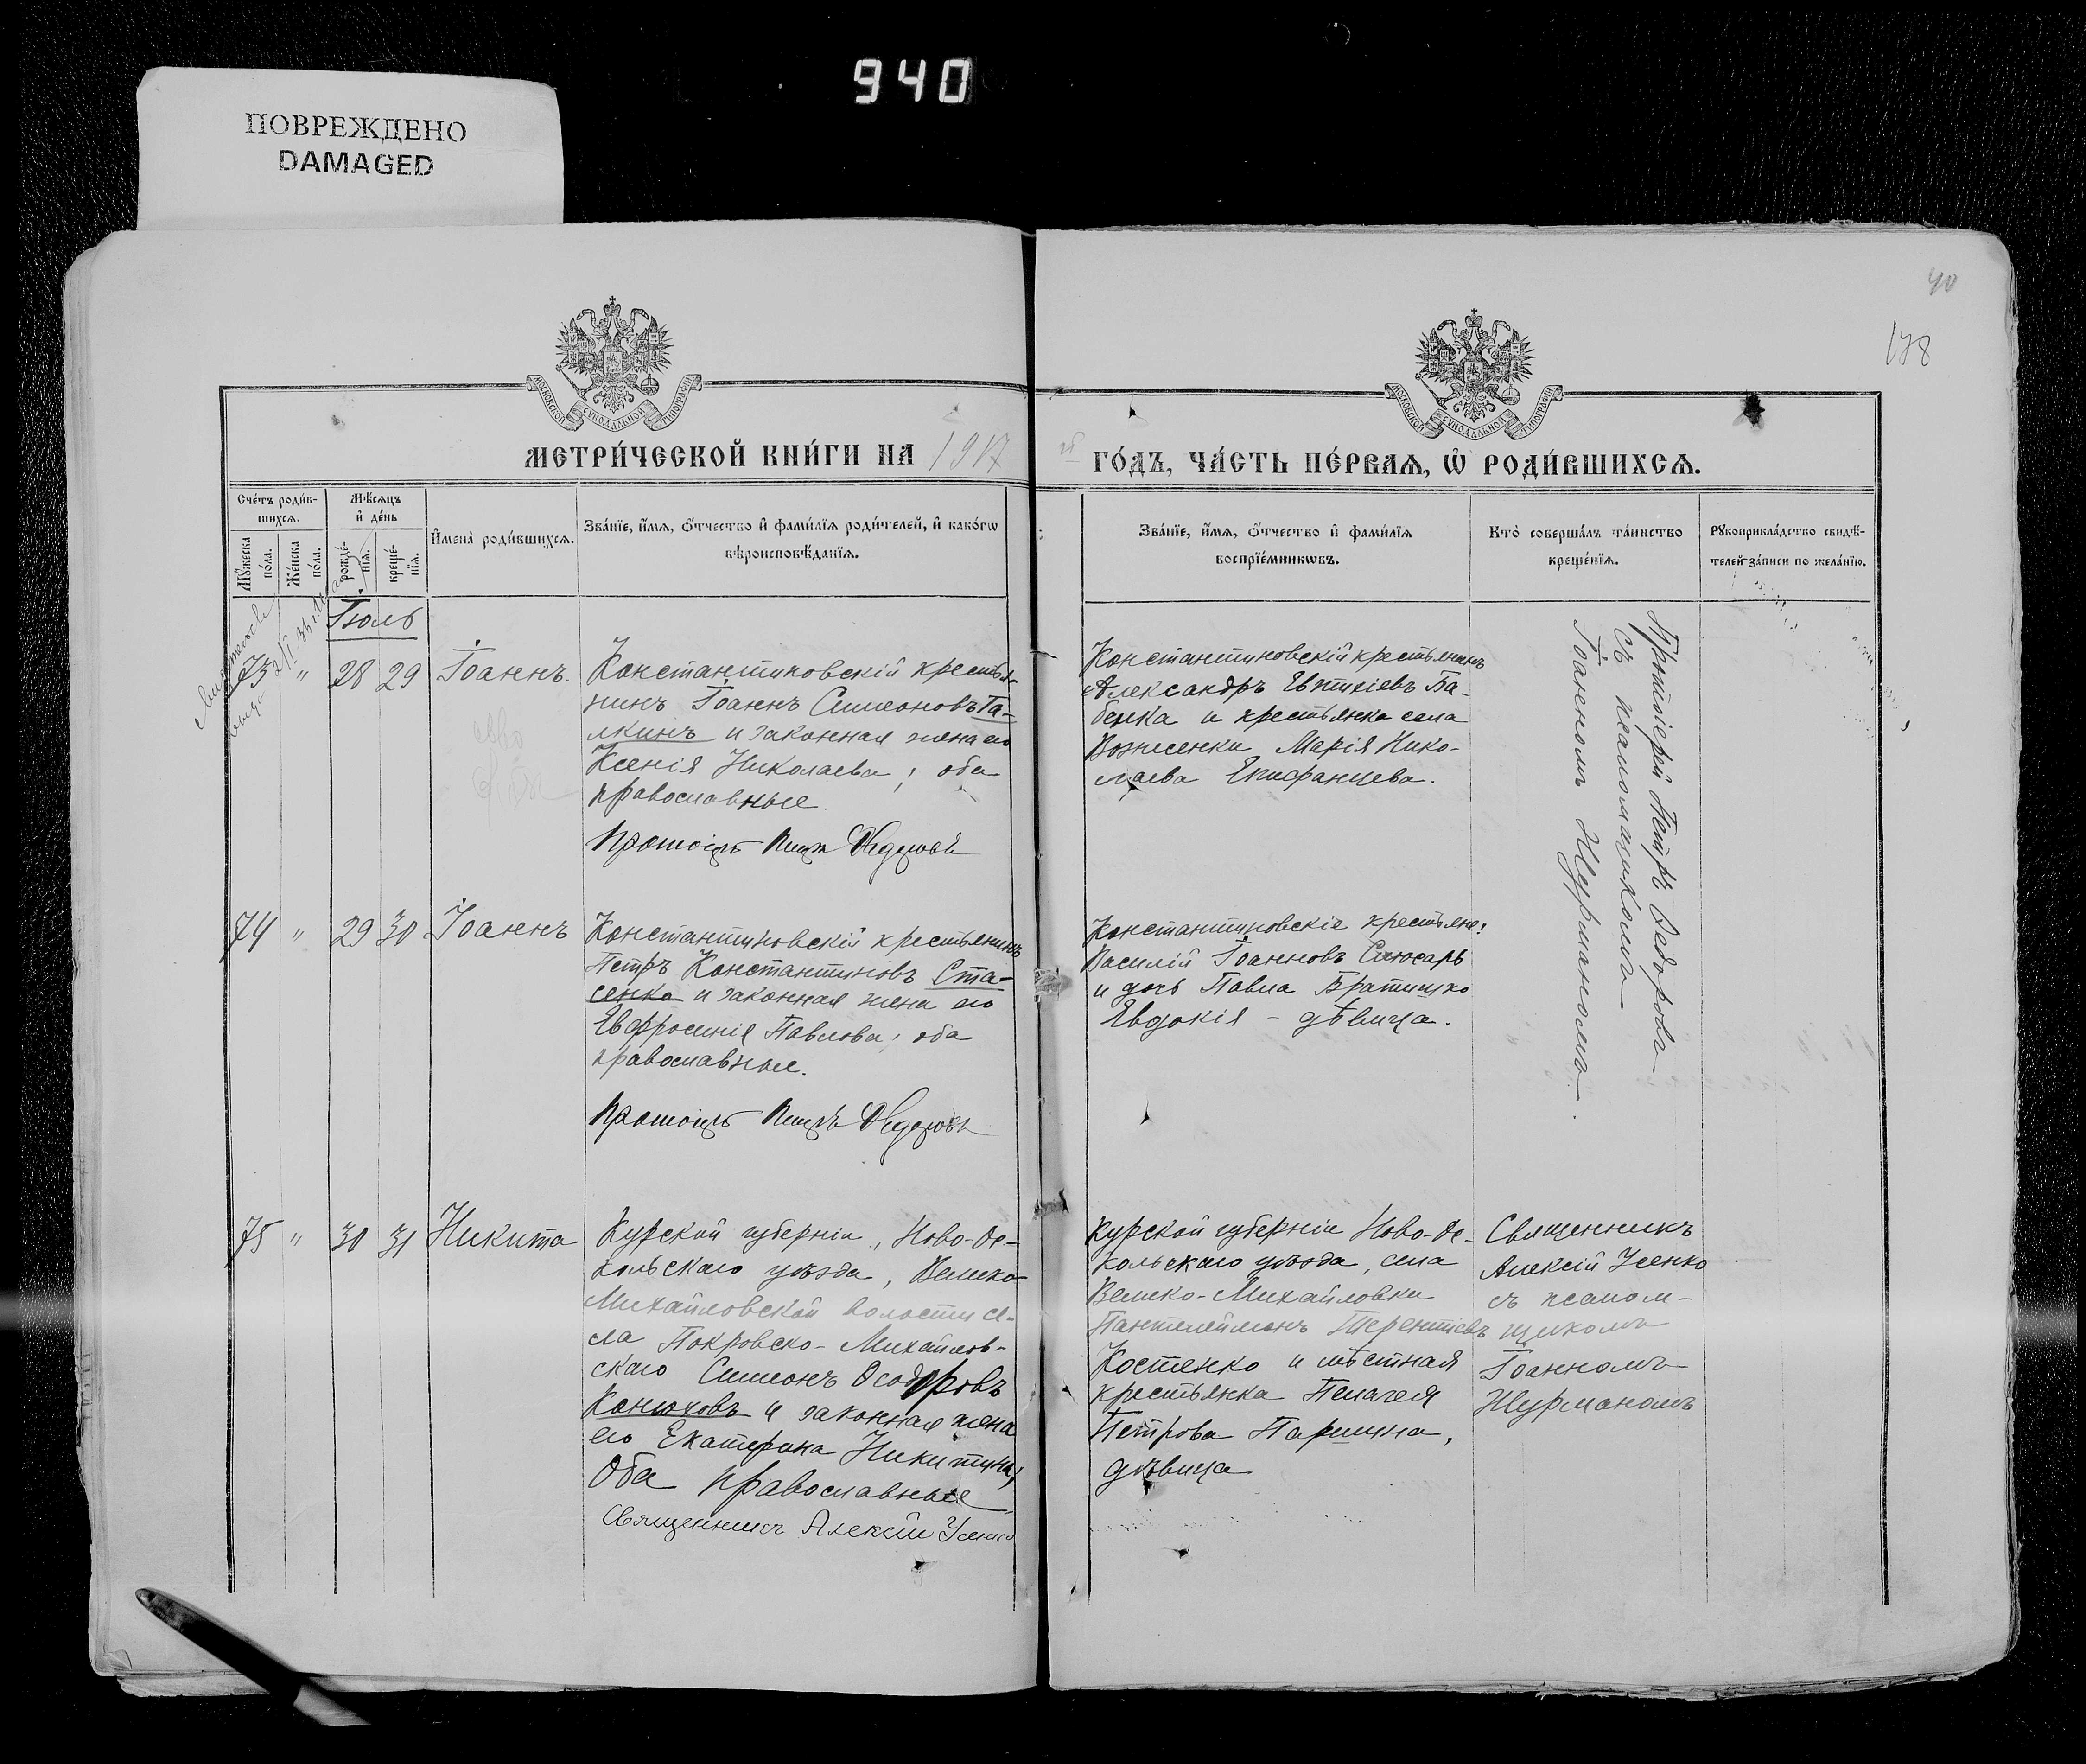 940
ПОВРЕЖДЕНО
DAMAGED
40
178
МОСКОВСКОЙ СѴНОДАЛЬНОЙ ТИПОГРАФІИ
МОСКОВСКОЙ СѴНОДАЛЬНОЙ ТИПОГРАФІИ
МЕТРИ́ЧЕСКОЙ КНИ́ГИ НА 1917
й ГО́ДЪ, ЧА́СТЬ ПЕ́РВАѦ, Ѡ РОДИ́ВШИХСѦ.
Сче́тъ роди́в-
шихсѧ.
Мѣ́сѧцъ
и҆ де́нь
Мꙋ́жеска
по́ла.
Же́нска
по́ла.
рожде́-
нїѧ.
креще́-
нїѧ.
И҆мена̀ роди́вшихсѧ.
Зва́нїе, и҆́мѧ, ѻ҆́тчество и҆ фами́лїѧ роди́телей, и҆ како́гѡ
вѣроисповѣ́данїѧ.
Зва́нїе, и҆́мѧ, ѻ҆́тчество и҆ фами́лїѧ
воспрїе́мникѡвъ.
Кто̀ соверша́лъ та́инство
креще́нїѧ.
Рꙋкоприкла́дство свидѣ́-
телей за́писи по жела́нїю.
Іюль
73 " 28 29 Іоаннъ.
Константиновскій крестья-
нинъ Іоаннъ Симеоновъ Га-
лкинъ и законная жена его
Ксенія Николаева; оба
православные.
Протоіер. Петръ Ѳедоровъ
Константиновскій крестьянинъ
Александръ Евтихіевъ Ба-
бенка и крестьянка села
Вознесенки Марія Нико-
лаева Епифанцева.
Протоіерей Петръ Ѳедоровъ
съ псаломщикомъ
Іоанномъ Журманомъ.
74 " 29 30 Іоаннъ
Константиновскій крестьянинъ
Петръ Константиновъ Ста-
сенко и законная жена его
Евфросинія Павлова; оба
православные.
Протоіер. Петръ Ѳедоровъ
Константиновскіе крестьяне:
Василій Іоанновъ Слюсарь
и дочь Павла Братишко
Евдокія - дѣвица.
75 " 30 31 Никита
Курской губерніи, Ново-Ос-
кольскаго уѣзда, Велико-
Михайловской волости се-
ла Покровско-Михайлов-
скаго Симеонъ Ѳеодоровъ
Конюховъ и законная жена
его Екатерина Никитина;
Оба православные
Священникъ Алексій Усенко
Курской губерніи Ново-Ос-
кольскаго уѣзда, села
Велико-Михайловки
Пантелеймонъ Терентіевъ
Костенко и мѣстная
крестьянка Пелагея
Петрова Паршина,
дѣвица
Священникъ
Алексій Усенко
съ псалом-
щикомъ
Іоанномъ
Журманомъ